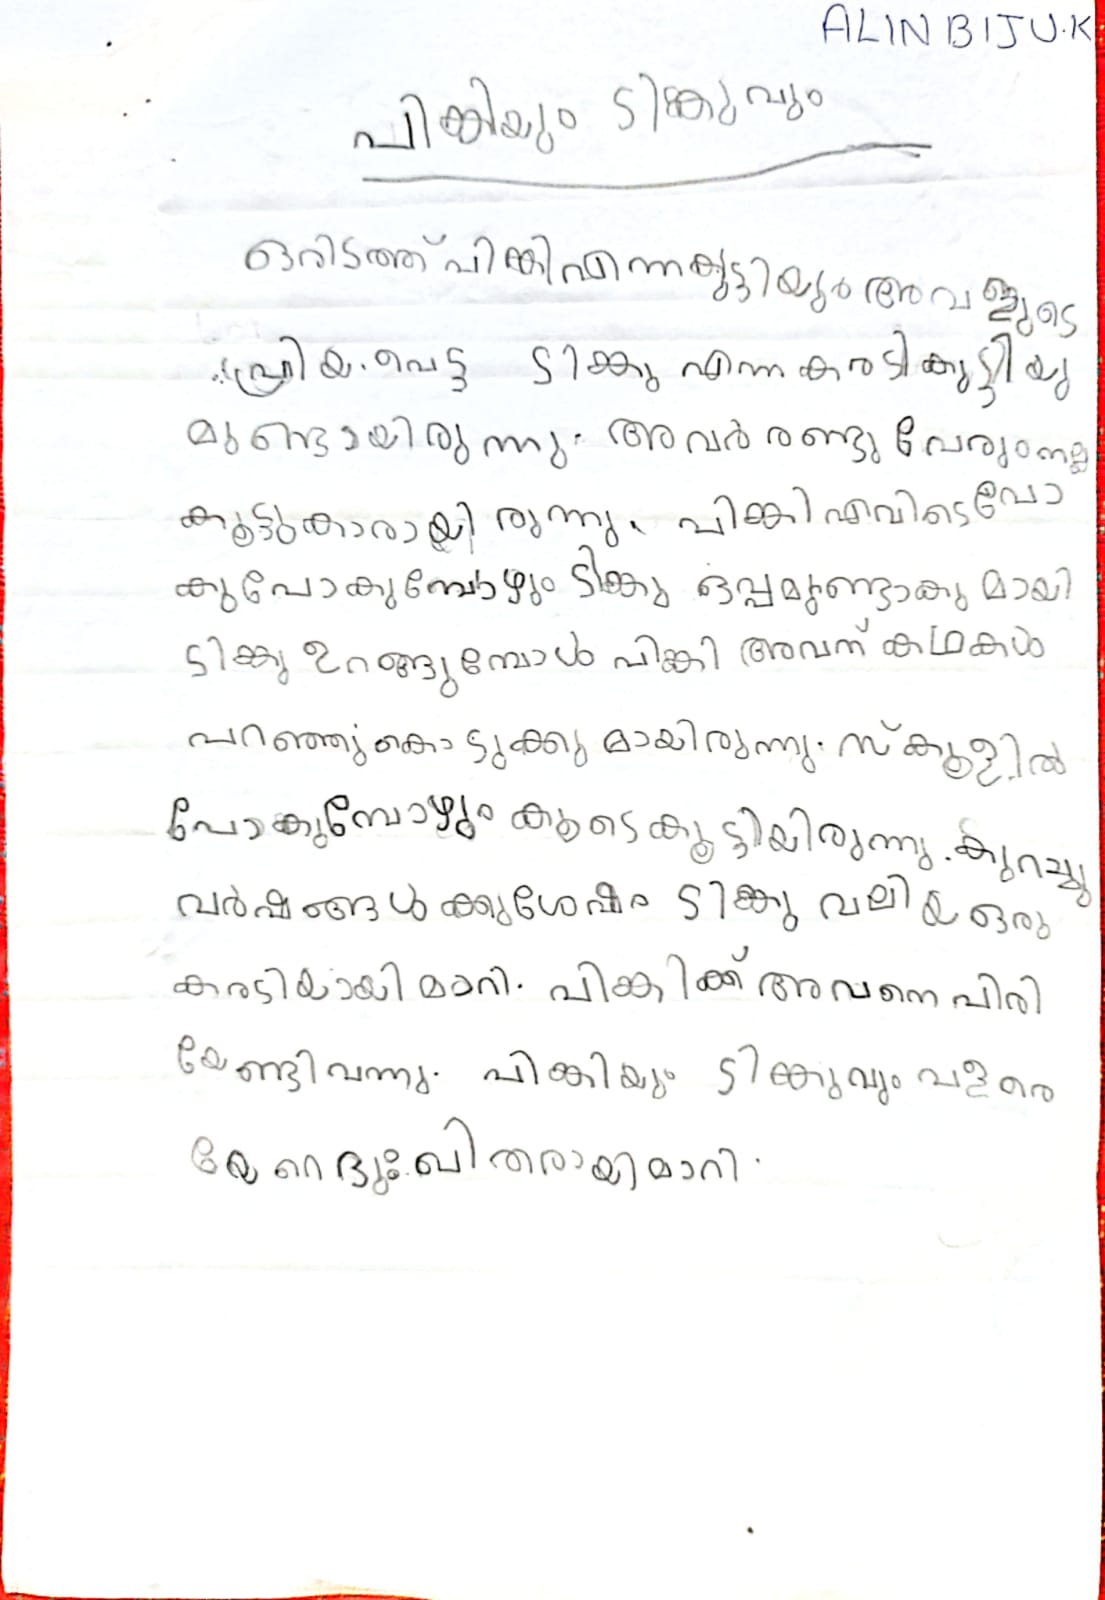 ALIN BIJU.K
പിങ്കിയും ടിങ്കുവും
ഒരിടത്ത് പിങ്കി എന്ന കുട്ടിയും അവളുടെ
പ്രിയ.പെട്ട ടിങ്കു എന്ന കരടികുട്ടിയു
മുണ്ടായിരുന്നു. അവർ രണ്ടു പേരും നല്ല
കൂട്ടുകാരായിരുന്നു. പിങ്കി എവിടെപോ
കുപോകുമ്പോഴും ടിങ്കു ഒപ്പമുണ്ടാകുമായി
ടിങ്കു ഉറങ്ങുമ്പോൾ പിങ്കി അവന് കഥകൾ
പറഞ്ഞുകൊടുക്കുമായിരുന്നു. സ്കൂളിൽ
പോകുമ്പോഴും കൂടെകൂട്ടിയിരുന്നു. കുറച്ചു
വർഷങ്ങൾക്കുശേഷം ടിങ്കു വലിയ ഒരു
കരടിയായിമാറി. പിങ്കിക്ക് അവനെ പിരി
യേണ്ടിവന്നു. പിങ്കിയും ടിങ്കുവും വളരെ
യേറെദുഃഖിതരായിമാറി.